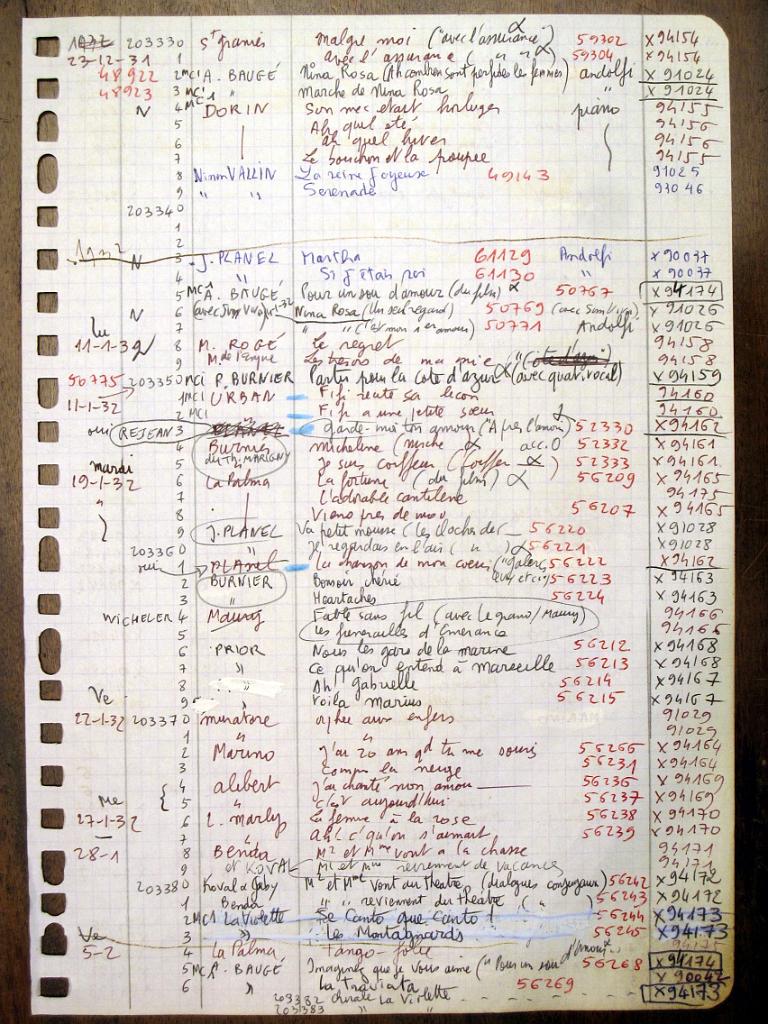 203330 St Granier Malgré moi ("avec l'assurance") 59302 X 94154
23-12-31 1 avec l'assurance ( " " ) 59304 X 94154
48922 2 MC1 A. BAUGÉ Nina Rosa (Ah combien sont perfides les femmes) andolfi X 91024
48923 3 MC1 " Marche de Nina Rosa " X 91024
N 4 MC1 DORIN Son mec etait horloger piano 94155
5 Ah quel été 94156
6 ah quel hiver 94156
7 Le bouchon et la poupée 94155
8 Ninon VALLIN La reine joyeuse 49143 91025
9 " " Serenade 93046
203340
1
1932 2
N 3 J. PLANEL Martha 61129 Andolfi X 90037
4 " Si j'étais roi 61130 " X 90037
5 MC1 A. BAUGÉ Pour un sou d'amour (du film) α 50767 X 94174
N 6 Nina Rosa (Un seul regard) 50769 X 91026
7 " " (C'est mon 1er amour) 50771 Andolfi X 91026
lu 8 M. ROGÉ Le regret 94158
11-1-32 9 Les tresors de ma mie 94158
50775 203350 MC1 R. BURNIER Partir pour la cote d'azur α (avec quat. vocal) X 94159
11-1-32 1 MC1 URBAN Fifi recite sa lecon 94160
2 MC1 Fifi a une petite soeur 94160
oui REJEAN 3 garde-moi ton amour ("Après l'amour) 52330 X 94162
4 Burnier micheline (miche α acc.O 52332 X 94161
5 du Th. MARIGNY Je suis coiffeur (coiffeur α) 52333 X 94161
mardi 19-1-32 6 La Palma La fortune (du film) α 56209 X 94165
" 7 L'adorable cantilene 94175
8 Viens pres de moi 56207 X 94165
9 J. PLANEL Va petit mousse (les cloches de 56220 X 91028
203360 " Je regardais en l'air ( " ) 56221 X 91028
oui 1 PLANEL La chanson de mon coeur 56222 X 94162
2 BURNIER Bonsoir cherie 56223 X 94163
3 " Heartaches 56224 X 94163
WICHELER 4 Maury Fable sans fil (avec Legrand/Maury) 94166
5 Les funerailles d'Emerance 94166
6 PRIOR Nous les gars de la marine 56212 X 94168
7 " Ce qu'on entend à marseille 56213 X 94168
8 " Ah! Gabrielle 56214 X 94167
Ve 9 " Voila Marius 56215 X 94167
22-1-32 203370 muratore orphée aux enfers 91029
1 " " 91029
2 Marino J'ai 20 ans qd tu me souris 56266 X 94164
3 Comm la neige 56231 X 94164
4 alibert J'ai chanté mon amour 56236 X 94169
Me 5 " C'est aujourd'hui 56237 X 94169
27-1-32 6 L. Marly La femme à la rose 56238 X 94170
7 " Ah! c'qu'on s'aimait 56239 X 94170
28-1 8 Benda Mr et Mme vont a la chasse 94171
9 et KOVAL Mr et Mme reviennent de vacances 94171
203380 Koval & Gaby Mr et Mme vont au theatre (dialogues conjugaux) 56242 X 94172
1 Benda " " reviennent du theatre ( " 56243 X 94172
2 MC1 La Violette Se Canto que Canto! 56244 X 94173
Ve 3 " Les Montagnards 56245 X 94173
5-2 4 La Palma Tango-folie 94175
5 MC1 A. BAUGÉ Imaginez que je vous aime ("Pour un sou d'amour") 56268 X 94174
6 " La Traviata 56269 X 90042
203382 chorale La Violette X 94173
201383 " "